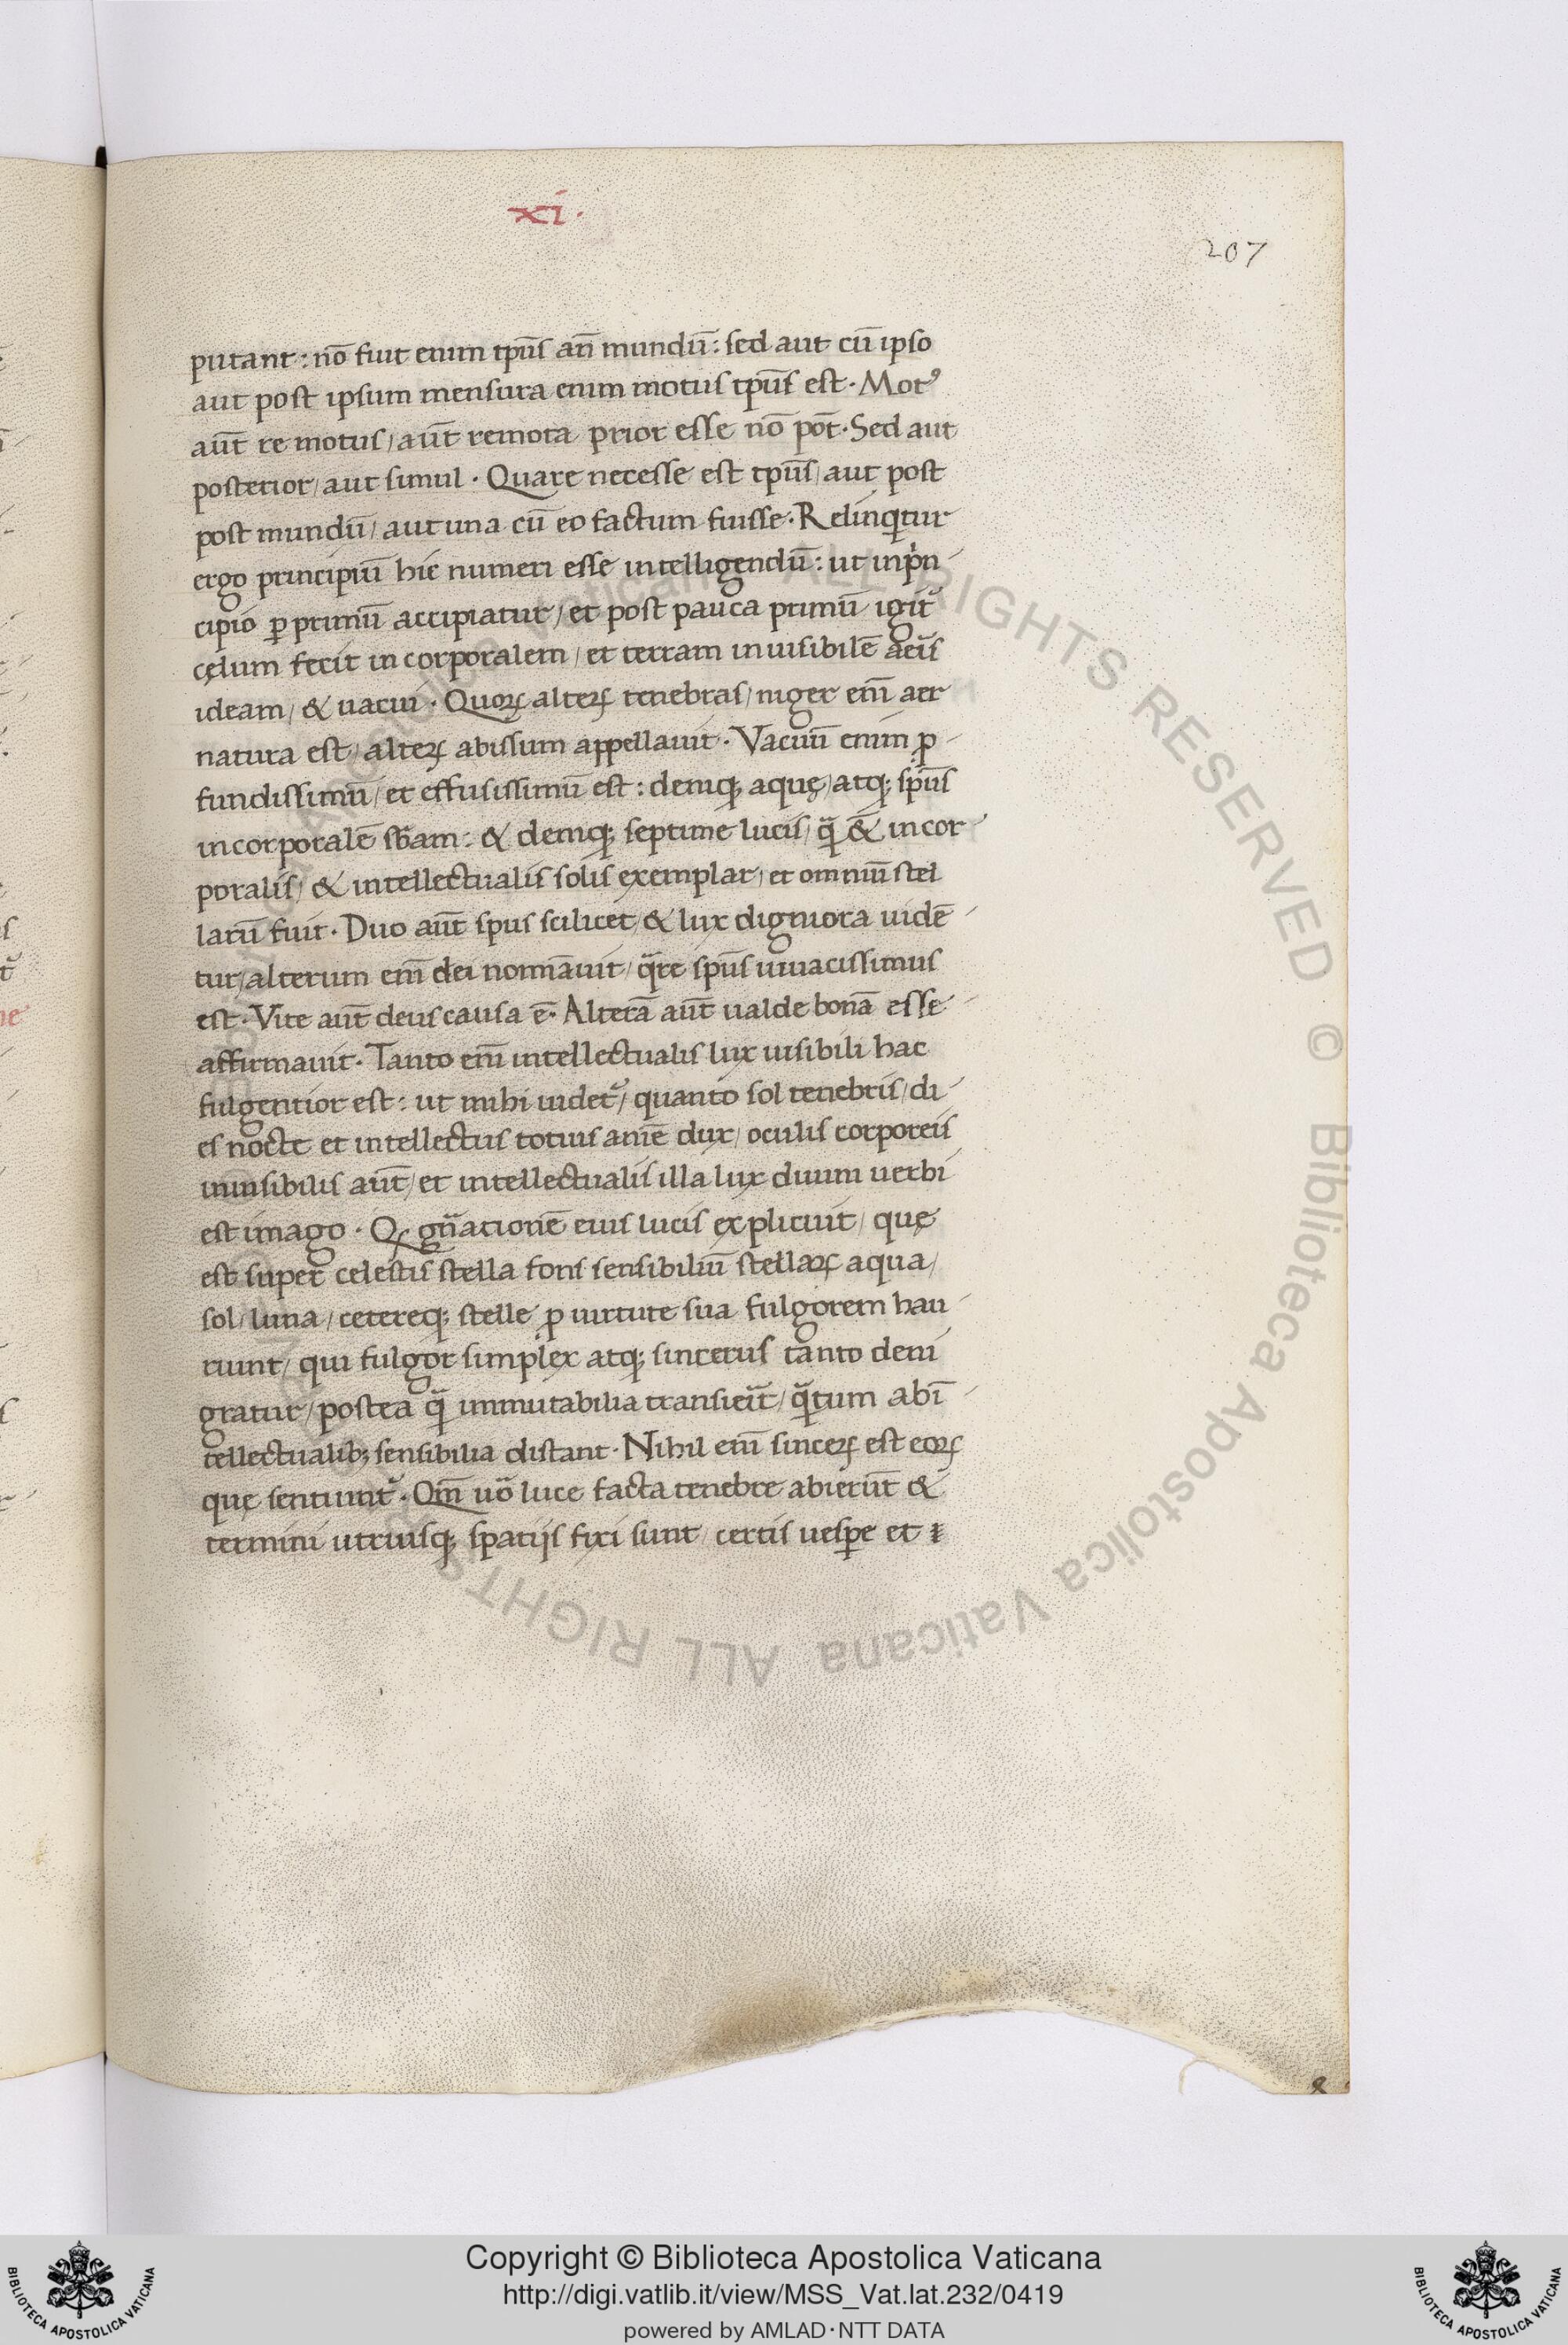 xi.
207
putant: nō fuit enim tp̄us an̄ mundū: sed aut cū ipso
aut post ipsum mensura enim motus tp̄us est. Motꝰ
aūt re motus/ aūt remota prior esse nō pōt. Sed aut
posterior/ aut simul. Quare necesse est tp̄us/ aut post
post mundū/ aut una cū eo factum fuisse. Relinqͥtur
ergo principiū hic numeri esse intelligendū: ut inpͥn-
cipio ꝑ primū accipiatur/ et post pauca primū igit᷑
cęlum fecit incorporalem/ et terram inuisibilē aeris
ideam/ & uacui. Quoꝝ alteꝝ tenebras/ niger em̄ aer
natura est/ alteꝝ abissum appellauit. Vacuū enim ꝓ-
fundissimū/ et effusissimū est: deniqꝫ aquę/ atqꝫ sp̄us
incorporalē sb̄am: & deniqꝫ septime lucis/ qͣ &̄ incor-
poralis/ & intellectualis solis exemplar/ et omniū stel
larū fuit. Duo aūt spus scilicet/ & lux digniora uidē-
tur/ alterum em̄ dei nomīauit/ qͣre sp̄us uiuacissimus
est. Vite aūt deus causa ē. Alterā aūt ualde bonā esse
affirmauit. Tanto em̄ intellectualis lux uisibili hac
fulgentior est: ut mihi uidet᷑/ quanto sol tenebris/ di-
es nocte et intellectus totius anīe dux/ oculis corporeis
inuisibilis aūt/ et intellectualis illa lux diuini uerbi
est imago. Qꝫ gn̄ationē eius lucis explicuit/ quę
est super celestis stella fons sensibiliū stellaꝝ a qua/
sol/ luna/ cetereqꝫ stelle ꝓ uirtute sua fulgorem hau-
riunt/ qui fulgor simplex atqꝫ sincerus tanto deni
gratur/ postea qͣ immutabilia transier̄t/ qͣtum ab ī-
tellectualibꝫ sensibilia distant. Nihil em̄ sinceꝝ est eoꝝ
quę sentiunt᷑. Qm̄ uō luce facta tenebre abierūt &
termini utriusqꝫ spatijs fixi sunt/ certis uesꝑe et
Copyright © Biblioteca Apostolica Vaticana
http://digi.vatlib.it/view/MSS_Vat.lat.232/0419
powered by AMLAD·NTT DATA